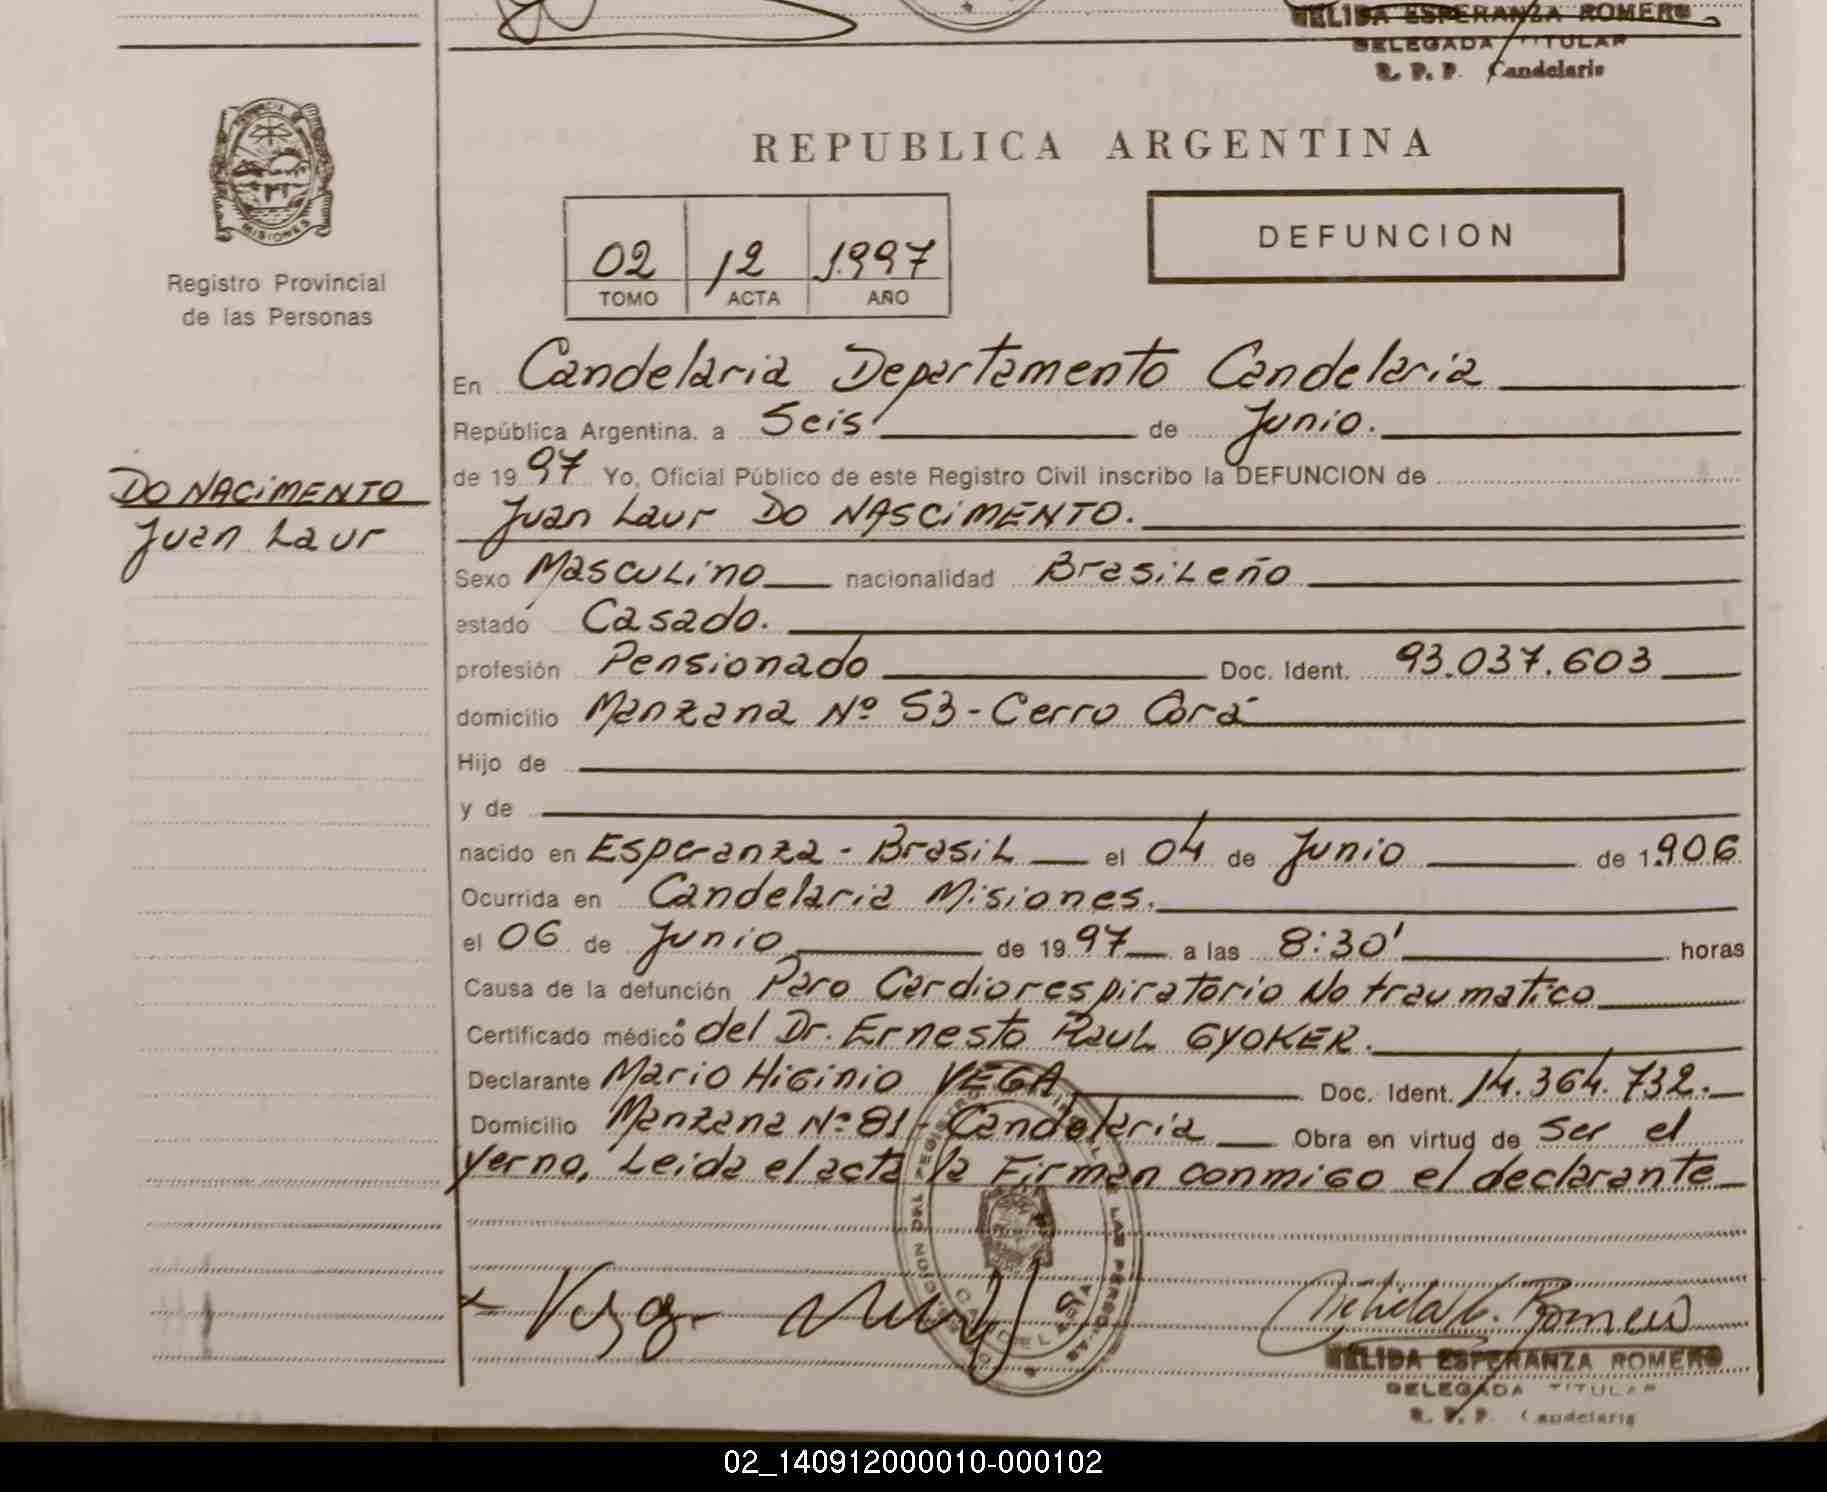 NELIDA ESPERANZA ROMERO
DELEGADA TITULAR
R. P. P. Candelaria
PROVINCIA
MISIONES
Registro Provincial
de las Personas
DO NACiMENTO
Juan Laur
REPUBLICA ARGENTINA
02 12 1997
TOMO ACTA AÑO
DEFUNCION
En Candelaria Departamento Candelaria
República Argentina, a Seis de Junio.
de 19 97 Yo, Oficial Público de este Registro Civil inscribo la DEFUNCION de
Juan Laur DO NASCiMENTO.
Sexo Masculino nacionalidad Brasileño
estado Casado.
profesión Pensionado Doc. Ident. 93.037.603
domicilio Manzana Nº 53 - Cerro Corá
Hijo de
y de
nacido en Esperanza - Brasil el 04 de Junio de 1.906
Ocurrida en Candelaria Misiones.
el 06 de Junio de 19 97 a las 8:30' horas
Causa de la defunción Paro Cardiorespiratorio No traumatico
Certificado médico del Dr. Ernesto Raul GYOKER.
Declarante Mario Higinio VEGA Doc. Ident. 14.364.732.
Domicilio Manzana Nº 81 - Candelaria Obra en virtud de ser el
yerno, Leida el acta la Firman conmigo el declarante
Vega
CANDELARIA
Romero
NELIDA ESPERANZA ROMERO
DELEGADA TITULAR
R. P. P. Candelaria
02_140912000010-000102